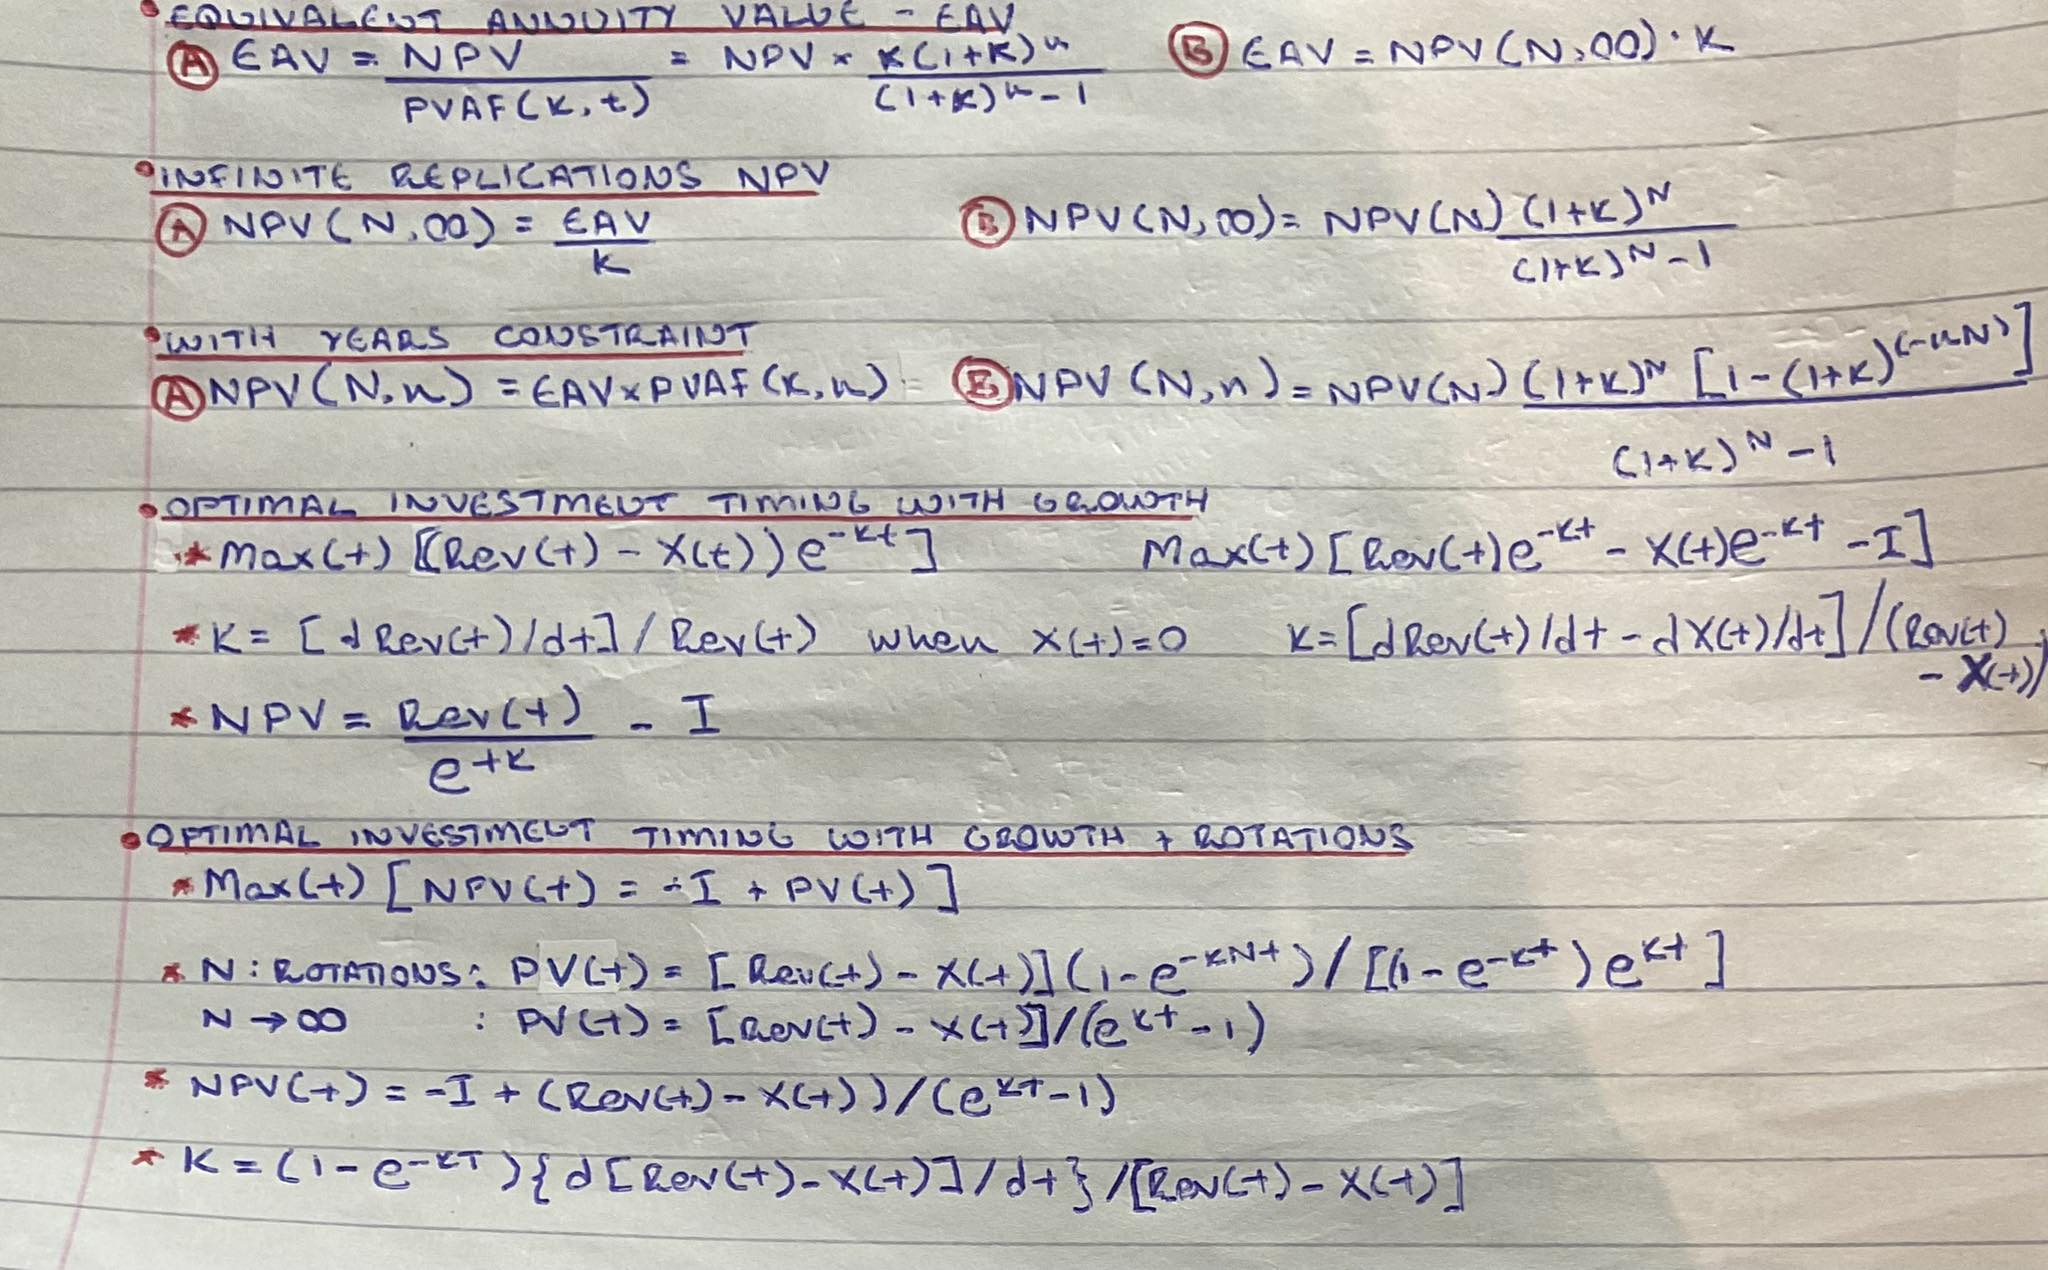 • EQUIVALENT ANNUITY VALUE - EAV
Ⓐ EAV = NPV / PVAF(K,t) = NPV × K(1+K)^n / (1+K)^n - 1    Ⓑ EAV = NPV(N,∞) · K
• INFINITE REPLICATIONS NPV
Ⓐ NPV(N,∞) = EAV / K    Ⓑ NPV(N,∞) = NPV(N) (1+K)^N / (1+K)^N - 1
• WITH YEARS CONSTRAINT
Ⓐ NPV(N,n) = EAV × PVAF(K,n)    Ⓑ NPV(N,n) = NPV(N) (1+K)^N [1-(1+K)^(-nN)] / (1+K)^N - 1
• OPTIMAL INVESTMENT TIMING WITH GROWTH
* Max(t) [(Rev(t) - X(t)) e^-Kt]    Max(t) [Rev(t)e^-Kt - X(t)e^-Kt - I]
* K = [dRev(t)/dt] / Rev(t) when X(t)=0    K = [dRev(t)/dt - dX(t)/dt] / (Rev(t) - X(t))
* NPV = Rev(t) / e^tK - I
• OPTIMAL INVESTMENT TIMING WITH GROWTH + ROTATIONS
* Max(t) [NPV(t) = -I + PV(t)]
* N: ROTATIONS: PV(t) = [Rev(t) - X(t)](1-e^-KNt) / [(1-e^-Kt) e^Kt]
N → ∞ : PV(t) = [Rev(t) - X(t)]/(e^Kt - 1)
* NPV(t) = -I + (Rev(t) - X(t))/(e^KT - 1)
* K = (1-e^-KT){d[Rev(t) - X(t)]/dt}/[Rev(t) - X(t)]